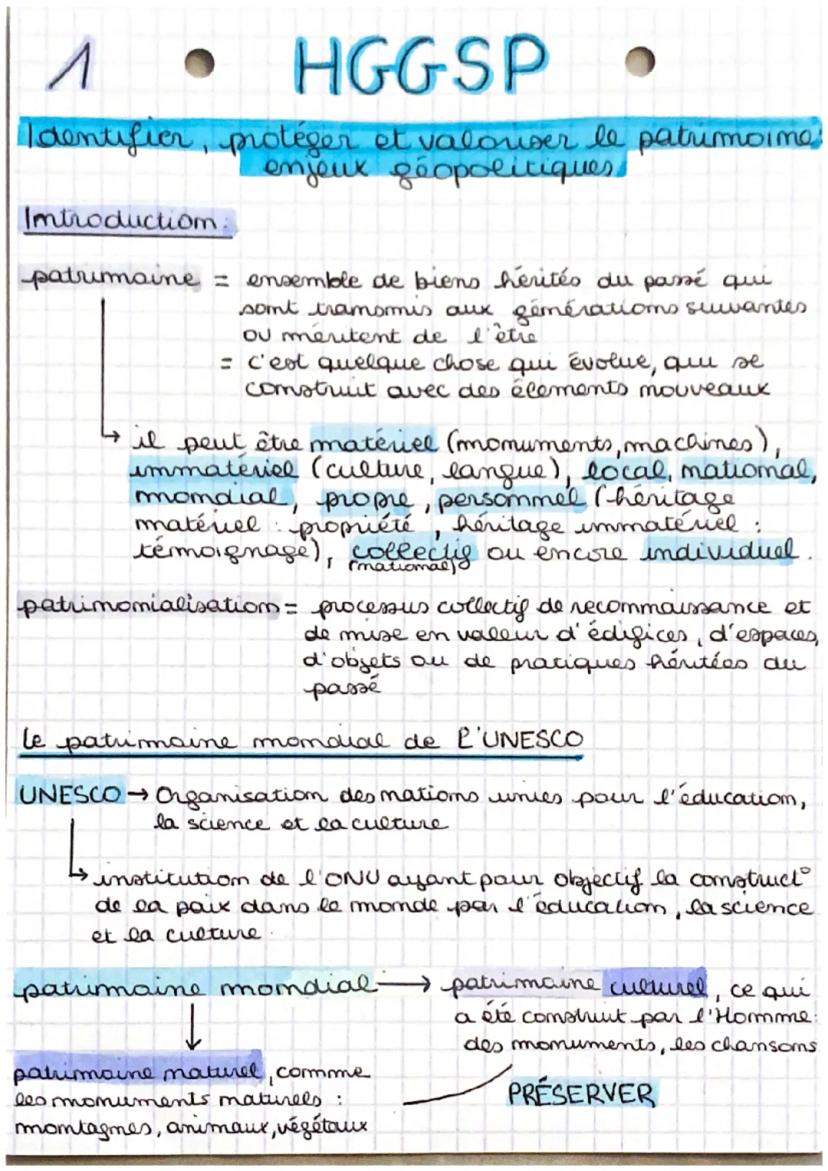 1 HGGSP
Identifier, protéger et valoriser le patrimoine:
enjeux géopolitiques
Introduction:
patrimoine = ensemble de biens hérités du passé qui
sont transmis aux générations suivantes
ou méritent de l'être
= c'est quelque chose qui évolue, qui se
construit avec des élements nouveaux
↳ il peut être matériel (monuments, machines),
immatériel (culture, langue), local, national,
mondial, propre, personnel (héritage
matériel : propriété, héritage immatériel :
témoignage), collectif ou encore individuel.
(national)
patrimonialisation = processus collectif de reconnaissance et
de mise en valeur d'édifices, d'espaces,
d'objets ou de pratiques héritées du
passé
Le patrimoine mondial de l'UNESCO
UNESCO → Organisation des nations unies pour l'éducation,
la science et la culture
↳ institution de l'ONU ayant pour objectif la construct°
de la paix dans le monde par l'éducation, la science
et la culture.
patrimoine mondial → patrimoine culturel, ce qui
a été construit par l'Homme:
des monuments, les chansons
patrimoine naturel, comme
les monuments naturels :
montagnes, animaux, végétaux
PRÉSERVER